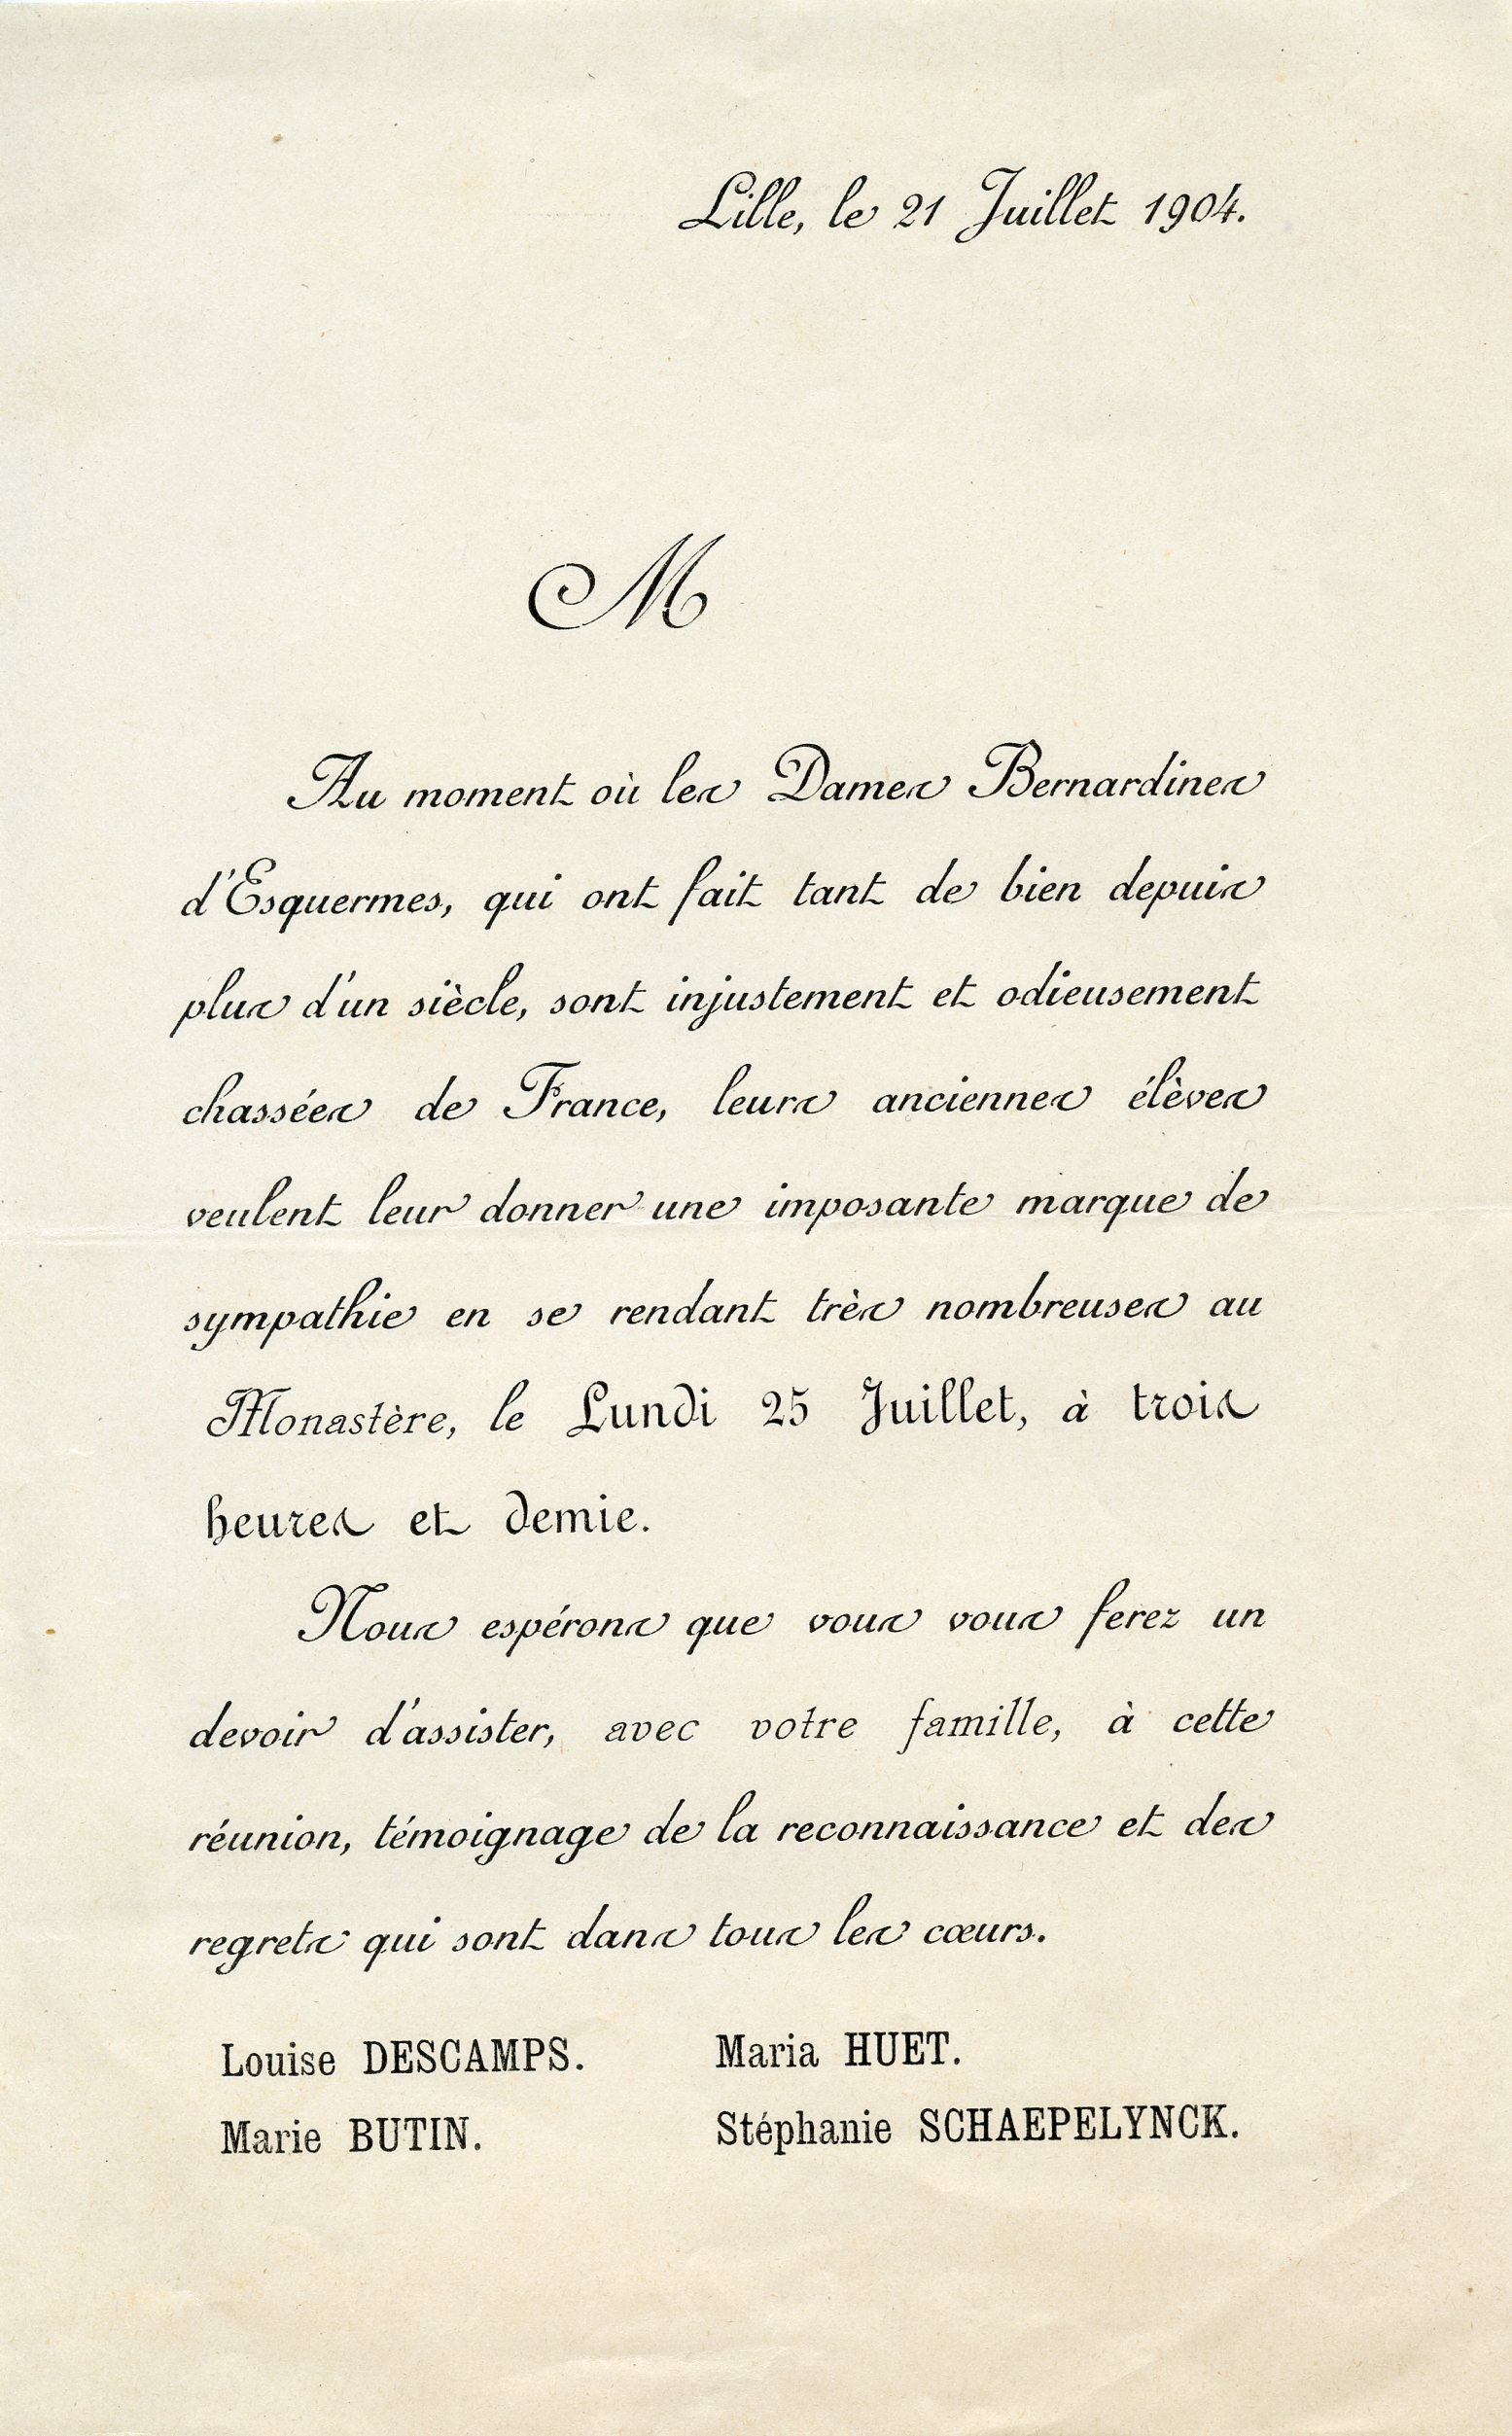 Lille, le 21 Juillet 1904.
M
Au moment où les Dames Bernardines
d'Esquermes, qui ont fait tant de bien depuis
plus d'un siècle, sont injustement et odieusement
chassées de France, leurs anciennes élèves
veulent leur donner une imposante marque de
sympathie en se rendant très nombreuses au
Monastère, le Lundi 25 Juillet, à trois
heures et demie.
Nous espérons que vous vous ferez un
devoir d'assister, avec votre famille, à cette
réunion, témoignage de la reconnaissance et des
regrets qui sont dans tous les cœurs.
Louise DESCAMPS. Maria HUET.
Marie BUTIN. Stéphanie SCHAEPELYNCK.